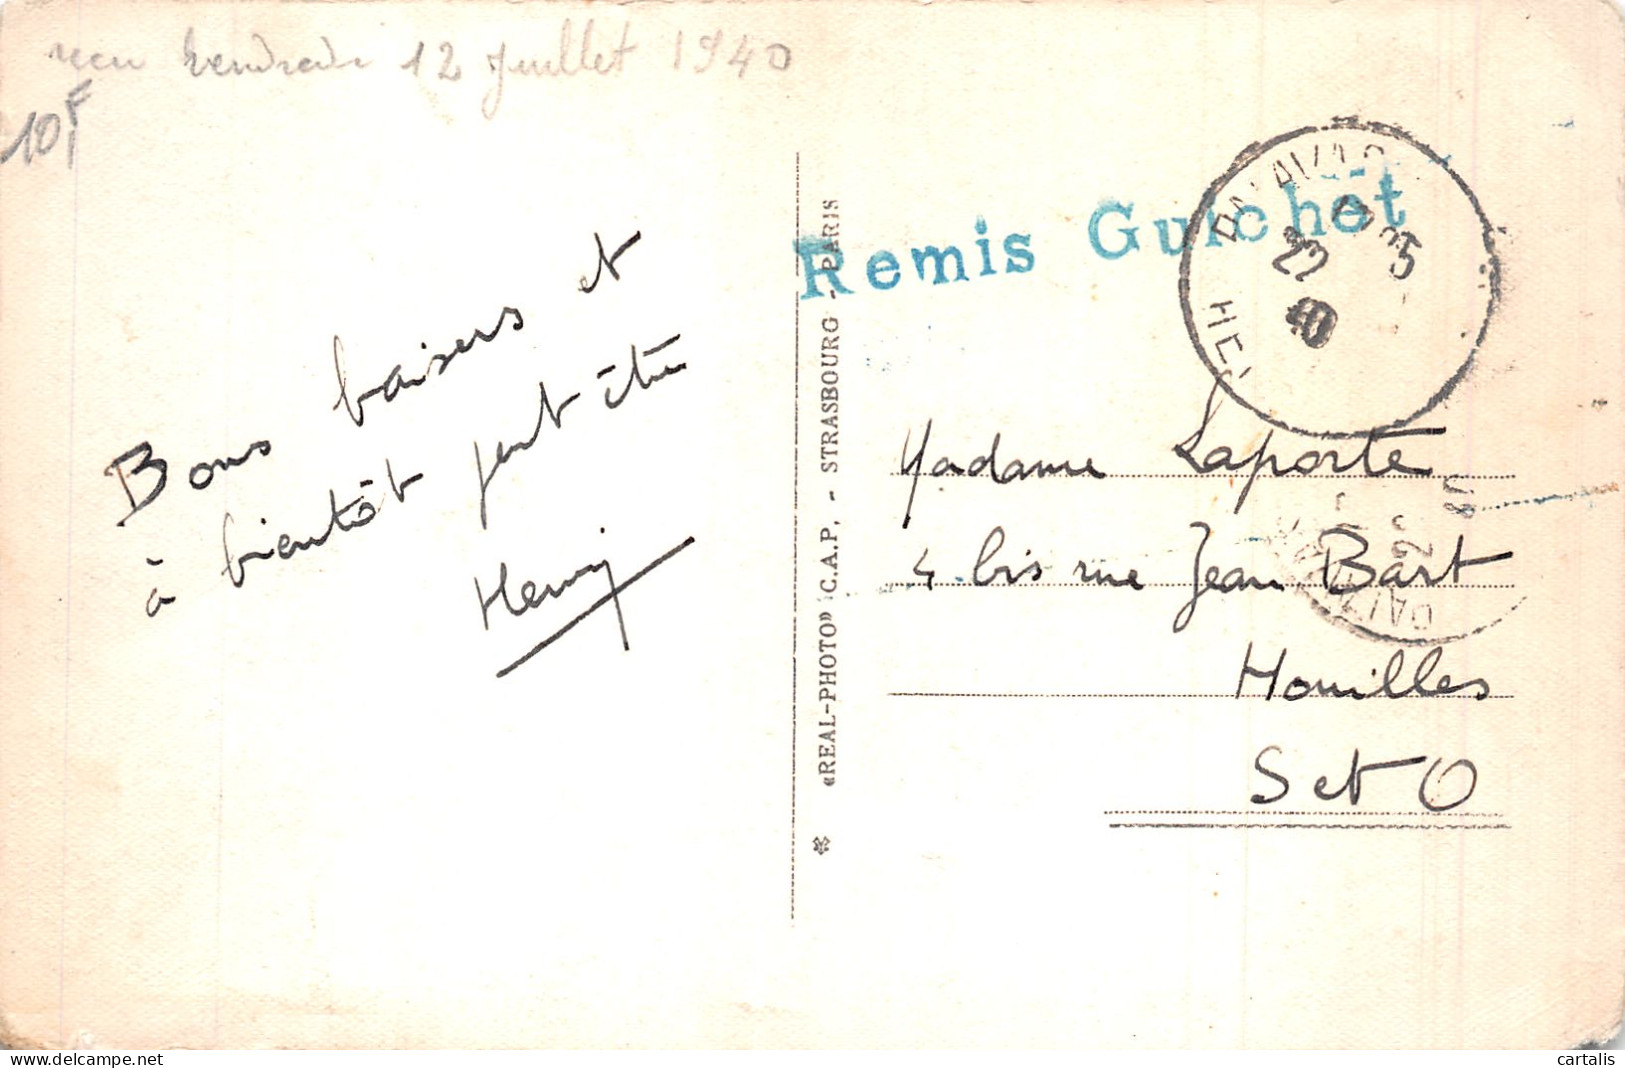 reçu vendredi 12 Juillet 1940
10F
Bons baisers et
à bientôt peut être
Henri
«REAL-PHOTO» C.A.P. - STRASBOURG - PARIS
Remis Guichet
22
5
40
Madame Laporte
4 bis rue Jean Bart
Houilles
S et O
cartalis